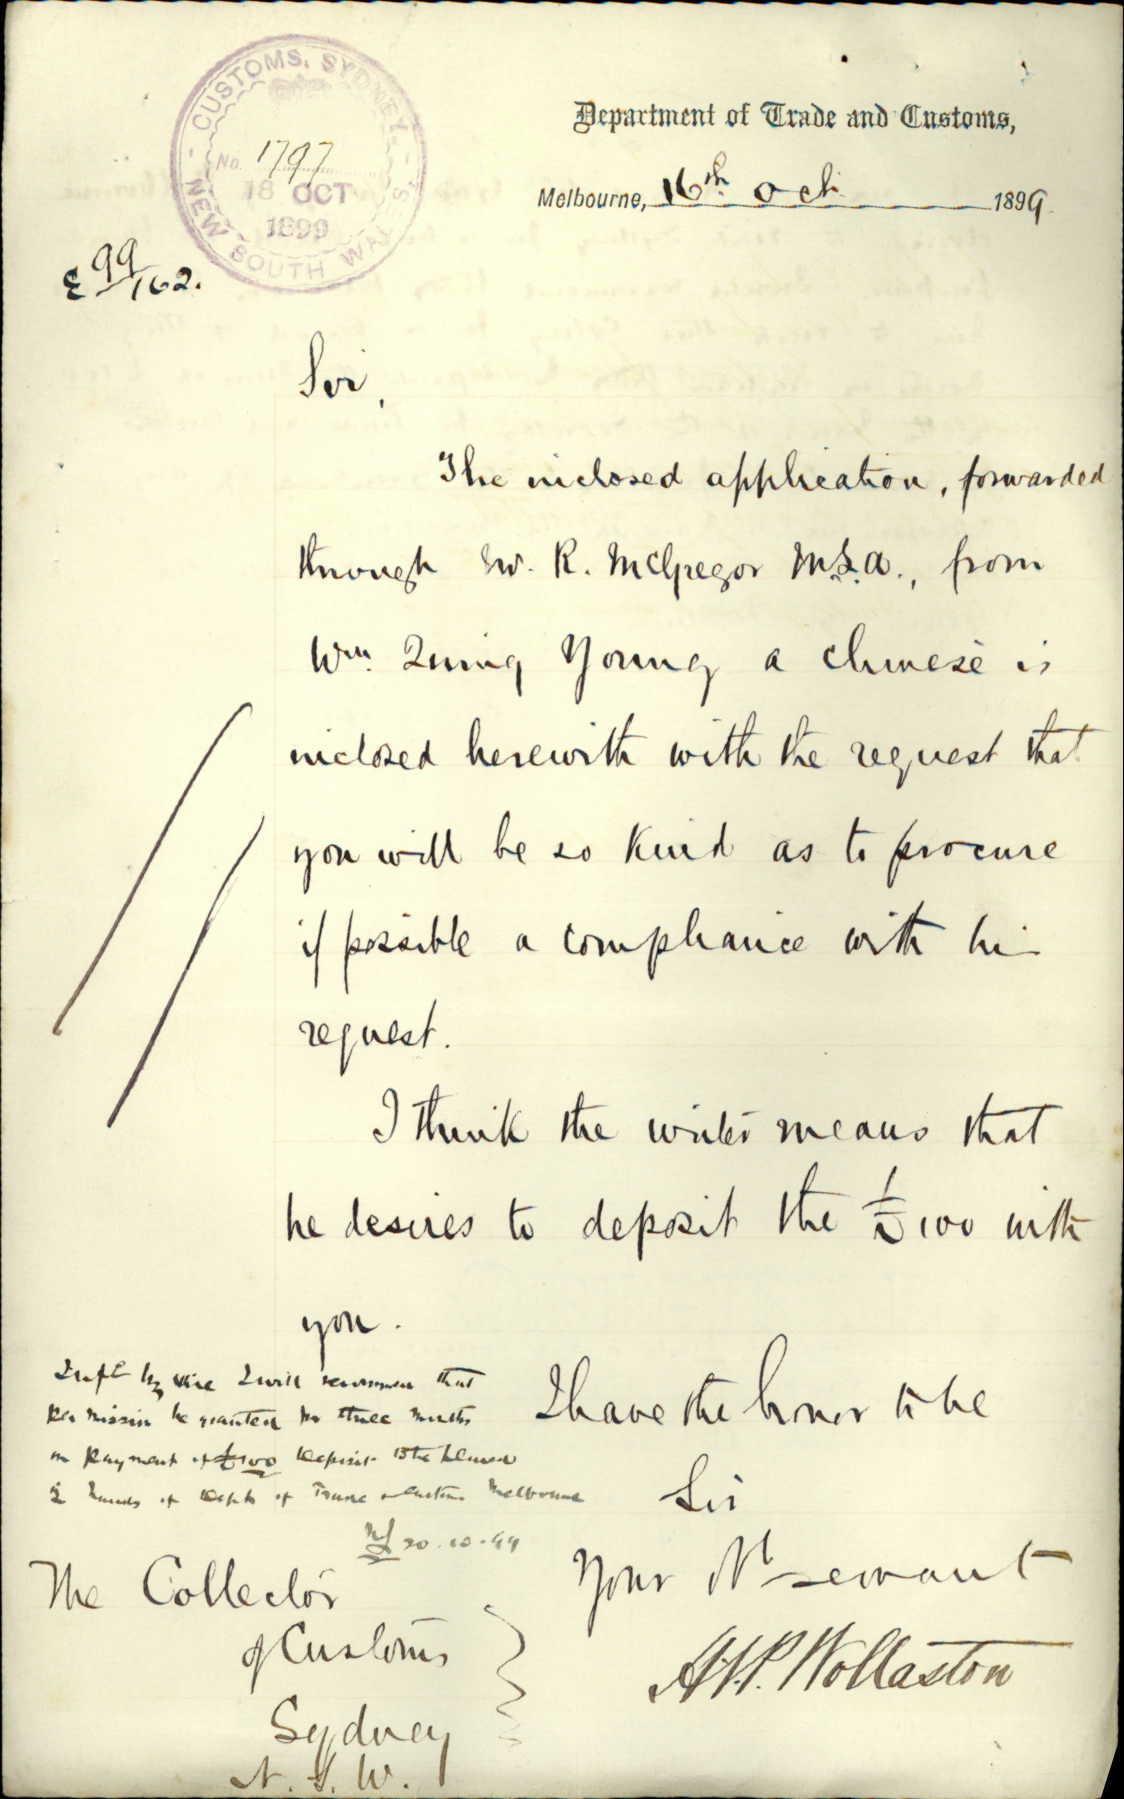 CUSTOMS, SYDNEY,
No. 1797
18 OCT
1899
NEW SOUTH WALES
Department of Trade and Customs,
Melbourne, 16th Oct 1899
E 99/162.
Sir,
The inclosed application, forwarded
through Mr. R. McGregor M.L.A., from
Wm. Quing Young a Chinese is
inclosed herewith with the request that
you will be so kind as to procure
if possible a compliance with his
request.
I think the writer means that
he desires to deposit the £100 with
you.
I have the honor to be
Sir
Your Ob servant
H.N.P. Wollaston
I will recommend that
permission be granted for three months
on payment of £100 deposit to be
in hands of Dept of Trade & Customs Melbourne
20.10.99
The Collector
of Customs
Sydney
N.S.W.